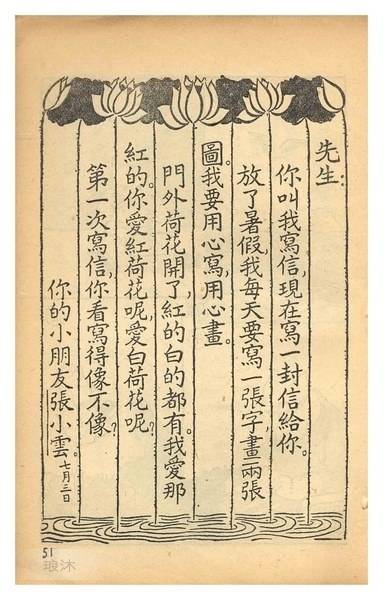 先生：
你叫我寫信，現在寫一封信給你。
放了暑假，我每天要寫一張字，畫兩張
圖。我要用心寫，用心畫。
門外荷花開了，紅的白的都有。我愛那
紅的。你愛紅荷花呢，愛白荷花呢？
第一次寫信，你看寫得像不像？
你的小朋友張小雲。七月三日
51
琅沐